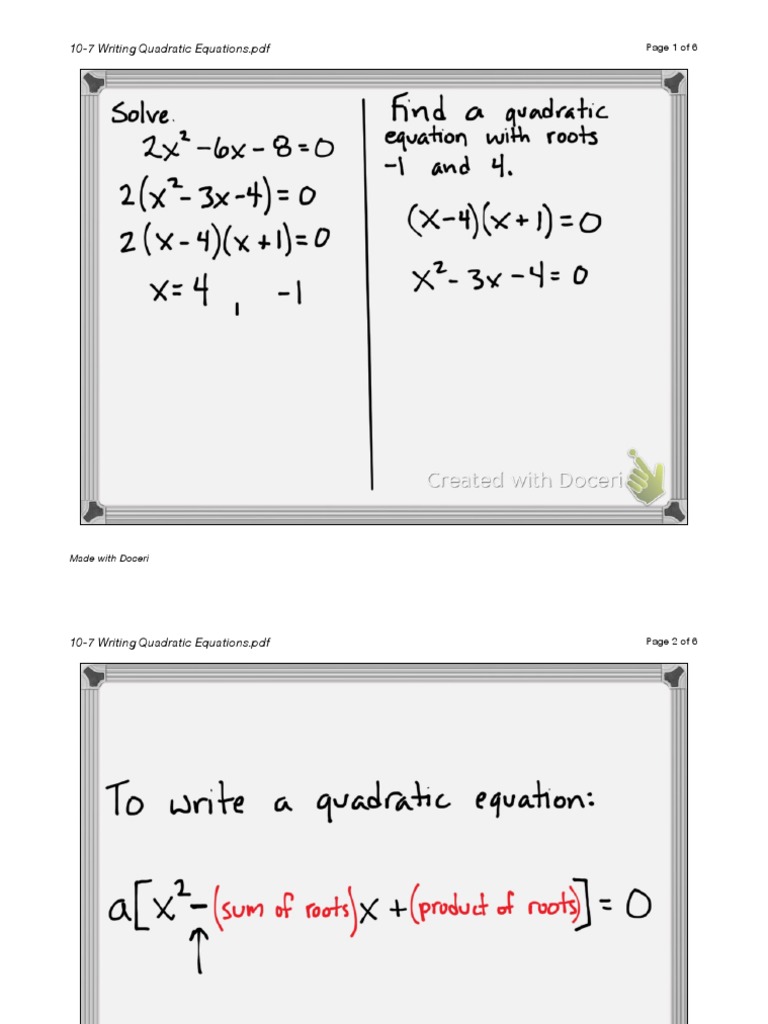 10-7 Writing Quadratic Equations.pdf
Page 1 of 6
Solve.
2x² -6x - 8 = 0
2(x² - 3x - 4) = 0
2(x - 4)(x + 1) = 0
x = 4 , -1
Find a quadratic
equation with roots
-1 and 4.
(x - 4)(x + 1) = 0
x² - 3x - 4 = 0
Created with Doceri
Made with Doceri
10-7 Writing Quadratic Equations.pdf
Page 2 of 6
To write a quadratic equation:
a[x² - (sum of roots)x + (product of roots)] = 0